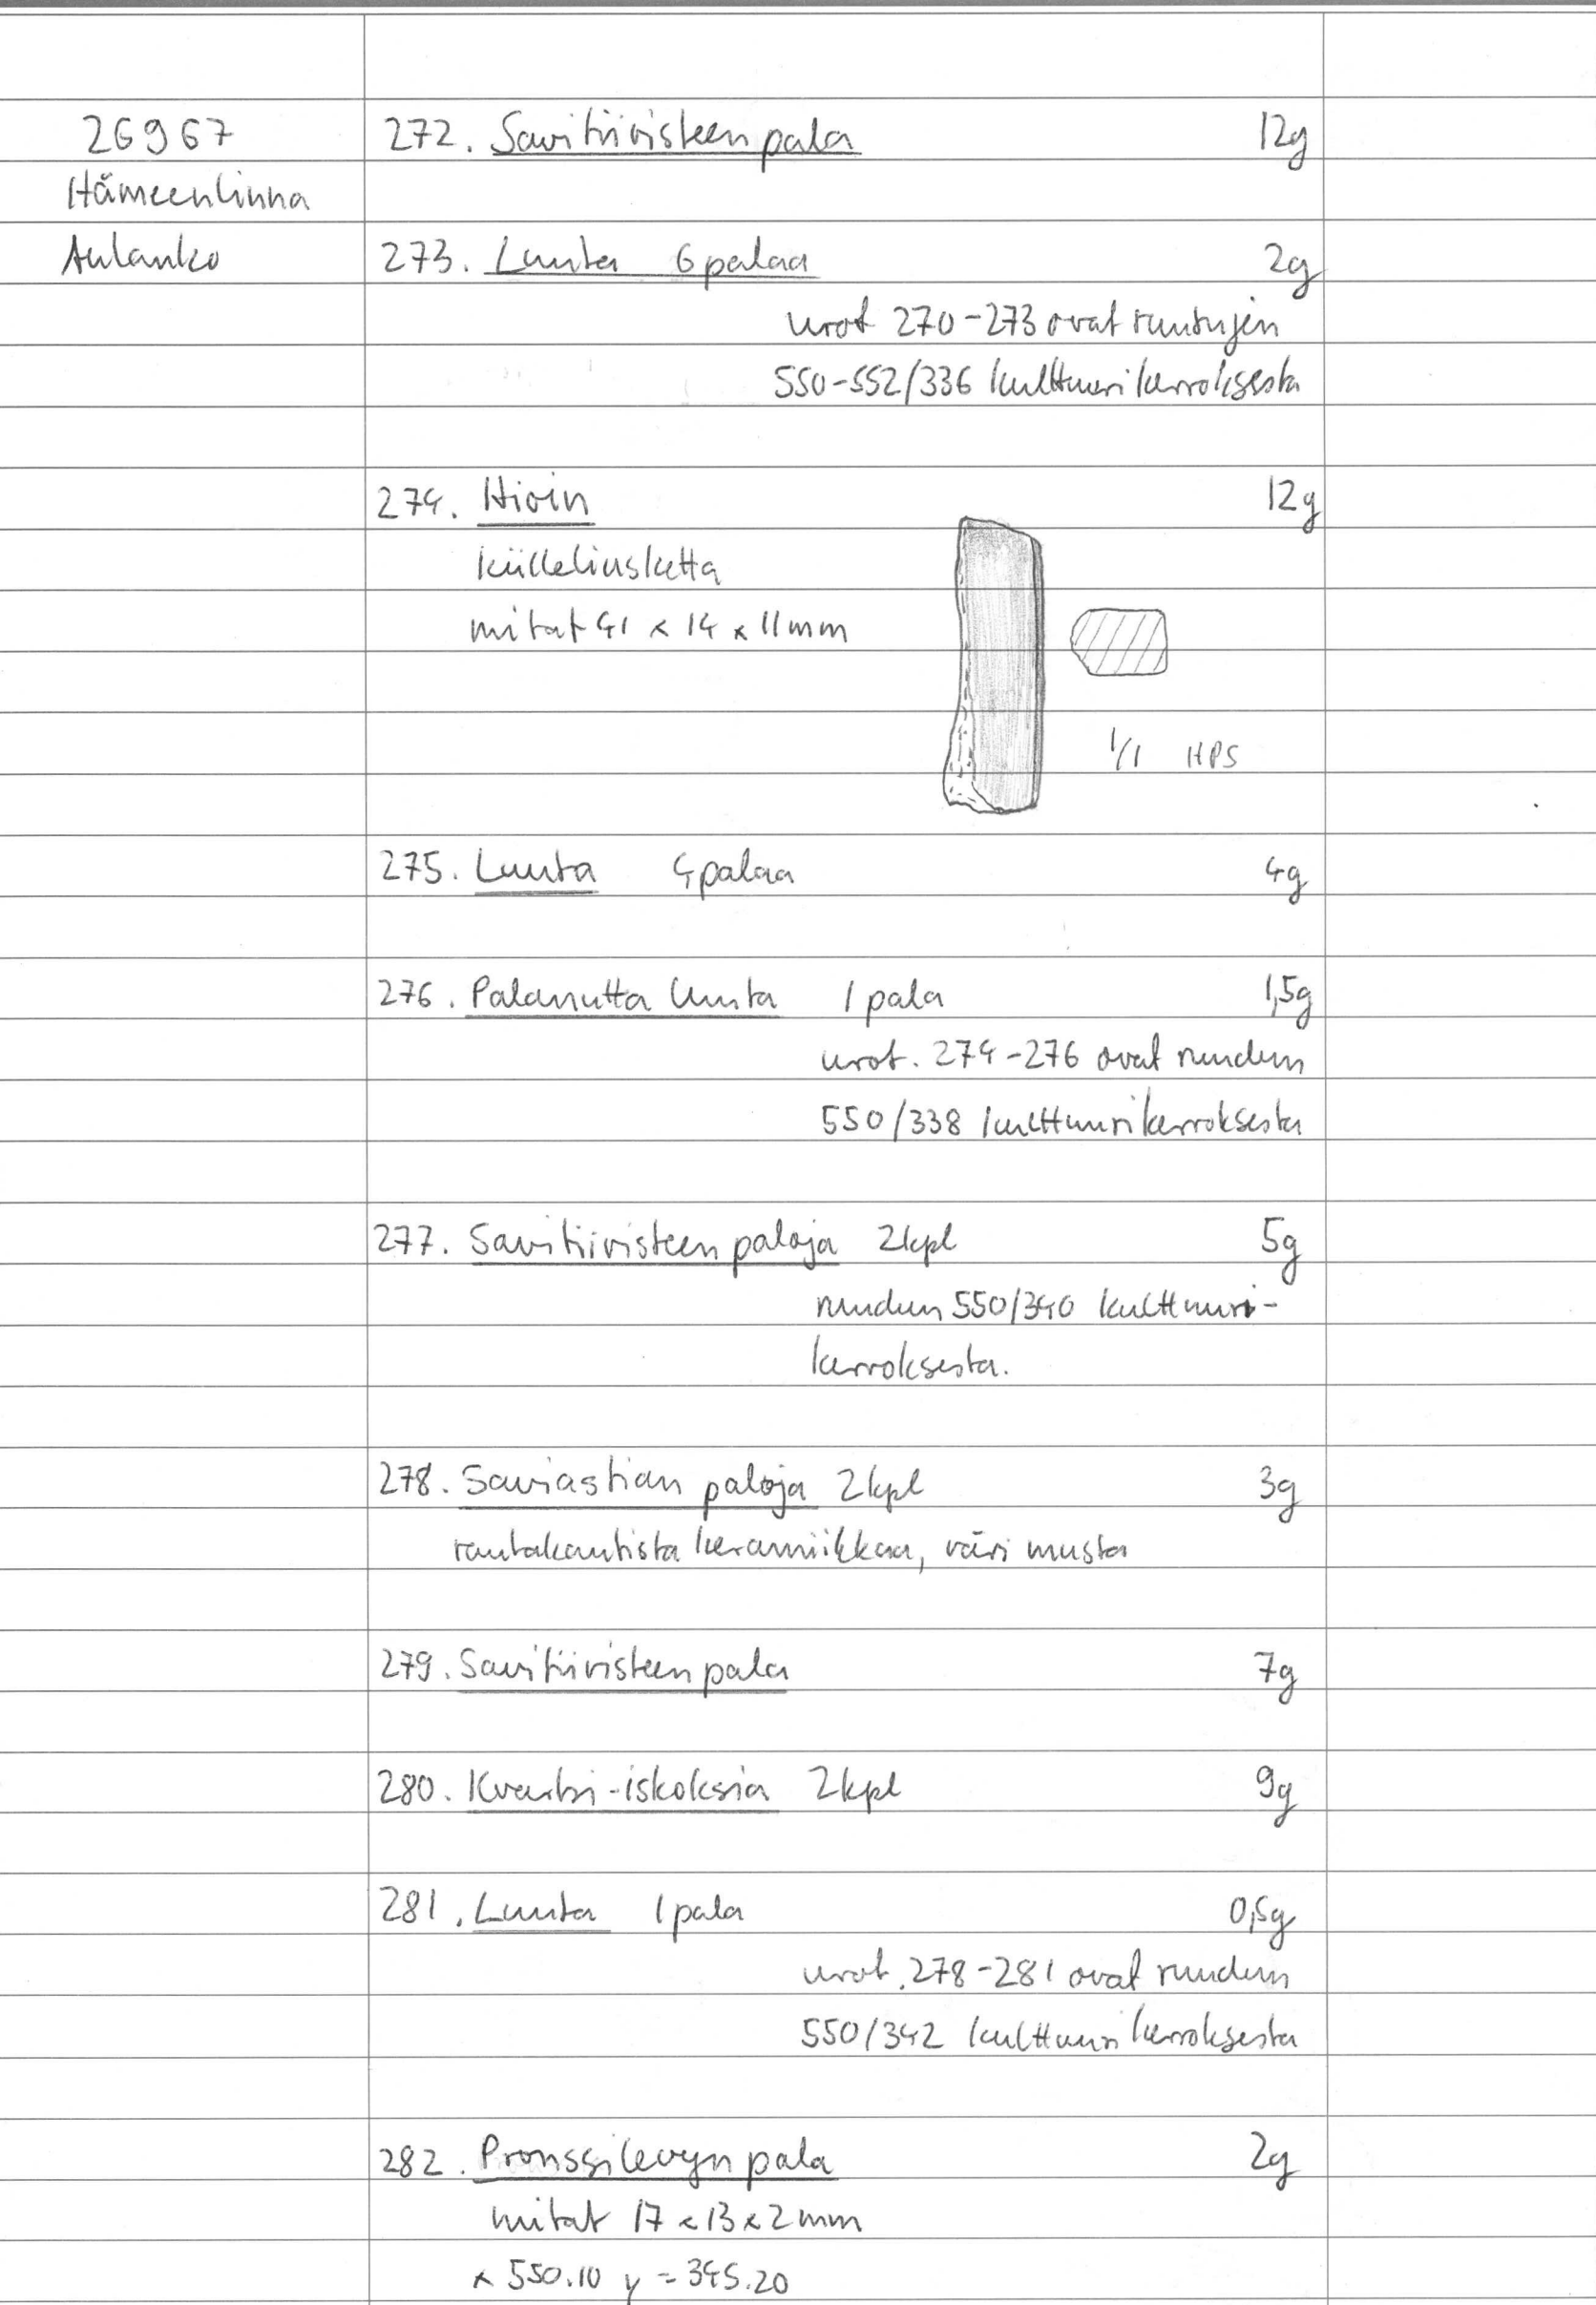 26967 272. Savitiivisteen pala 12g
Hämeenlinna
Aulanko 273. Luuta 6 palaa 2g
nrot 270-273 ovat ruutujen
550-552/336 kulttuurikerroksesta
274. Hioin 12g
kiilleliusketta
mitat 41 x 14 x 11mm
1/1 HPS
275. Luuta 4 palaa 4g
276. Palanutta luuta 1 pala 1,5g
nrot. 274-276 ovat ruudun
550/338 kulttuurikerroksesta
277. Savitiivisteen paloja 2kpl 5g
ruudun 550/340 kulttuuri-
kerroksesta.
278. Saviastian paloja 2kpl 3g
rautakautista keramiikkaa, väri musta
279. Savitiivisteen pala 7g
280. Kvartsi-iskoksia 2kpl 9g
281. Luuta 1 pala 0,5g
nrot. 278-281 ovat ruudun
550/342 kulttuurikerroksesta
282. Pronssilevyn pala 2g
mitat 17 x 13 x 2mm
x 550.10 y = 345.20